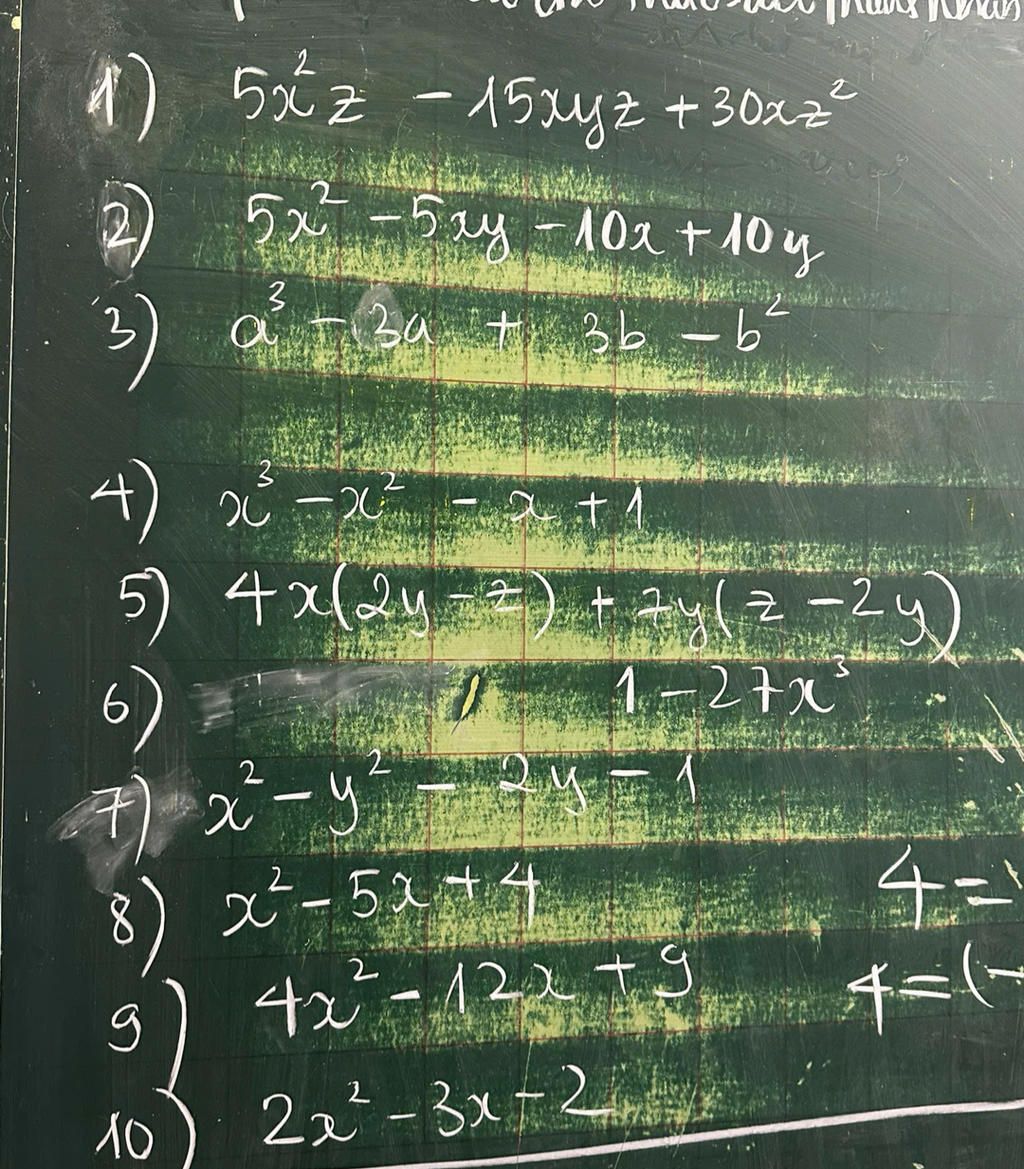 1) 5x²z - 15xyz + 30xz²
2) 5x² - 5xy - 10x + 10y
3) a³ - 3a + 3b - b²
4) x³ - x² - x + 1
5) 4x(2y - z) + 7y(z - 2y)
6) 1 - 27x³
7) x² - y² - 2y - 1
8) x² - 5x + 4 4 =
9) 4x² - 12x + 9 4 = (-
10) 2x² - 3x - 2